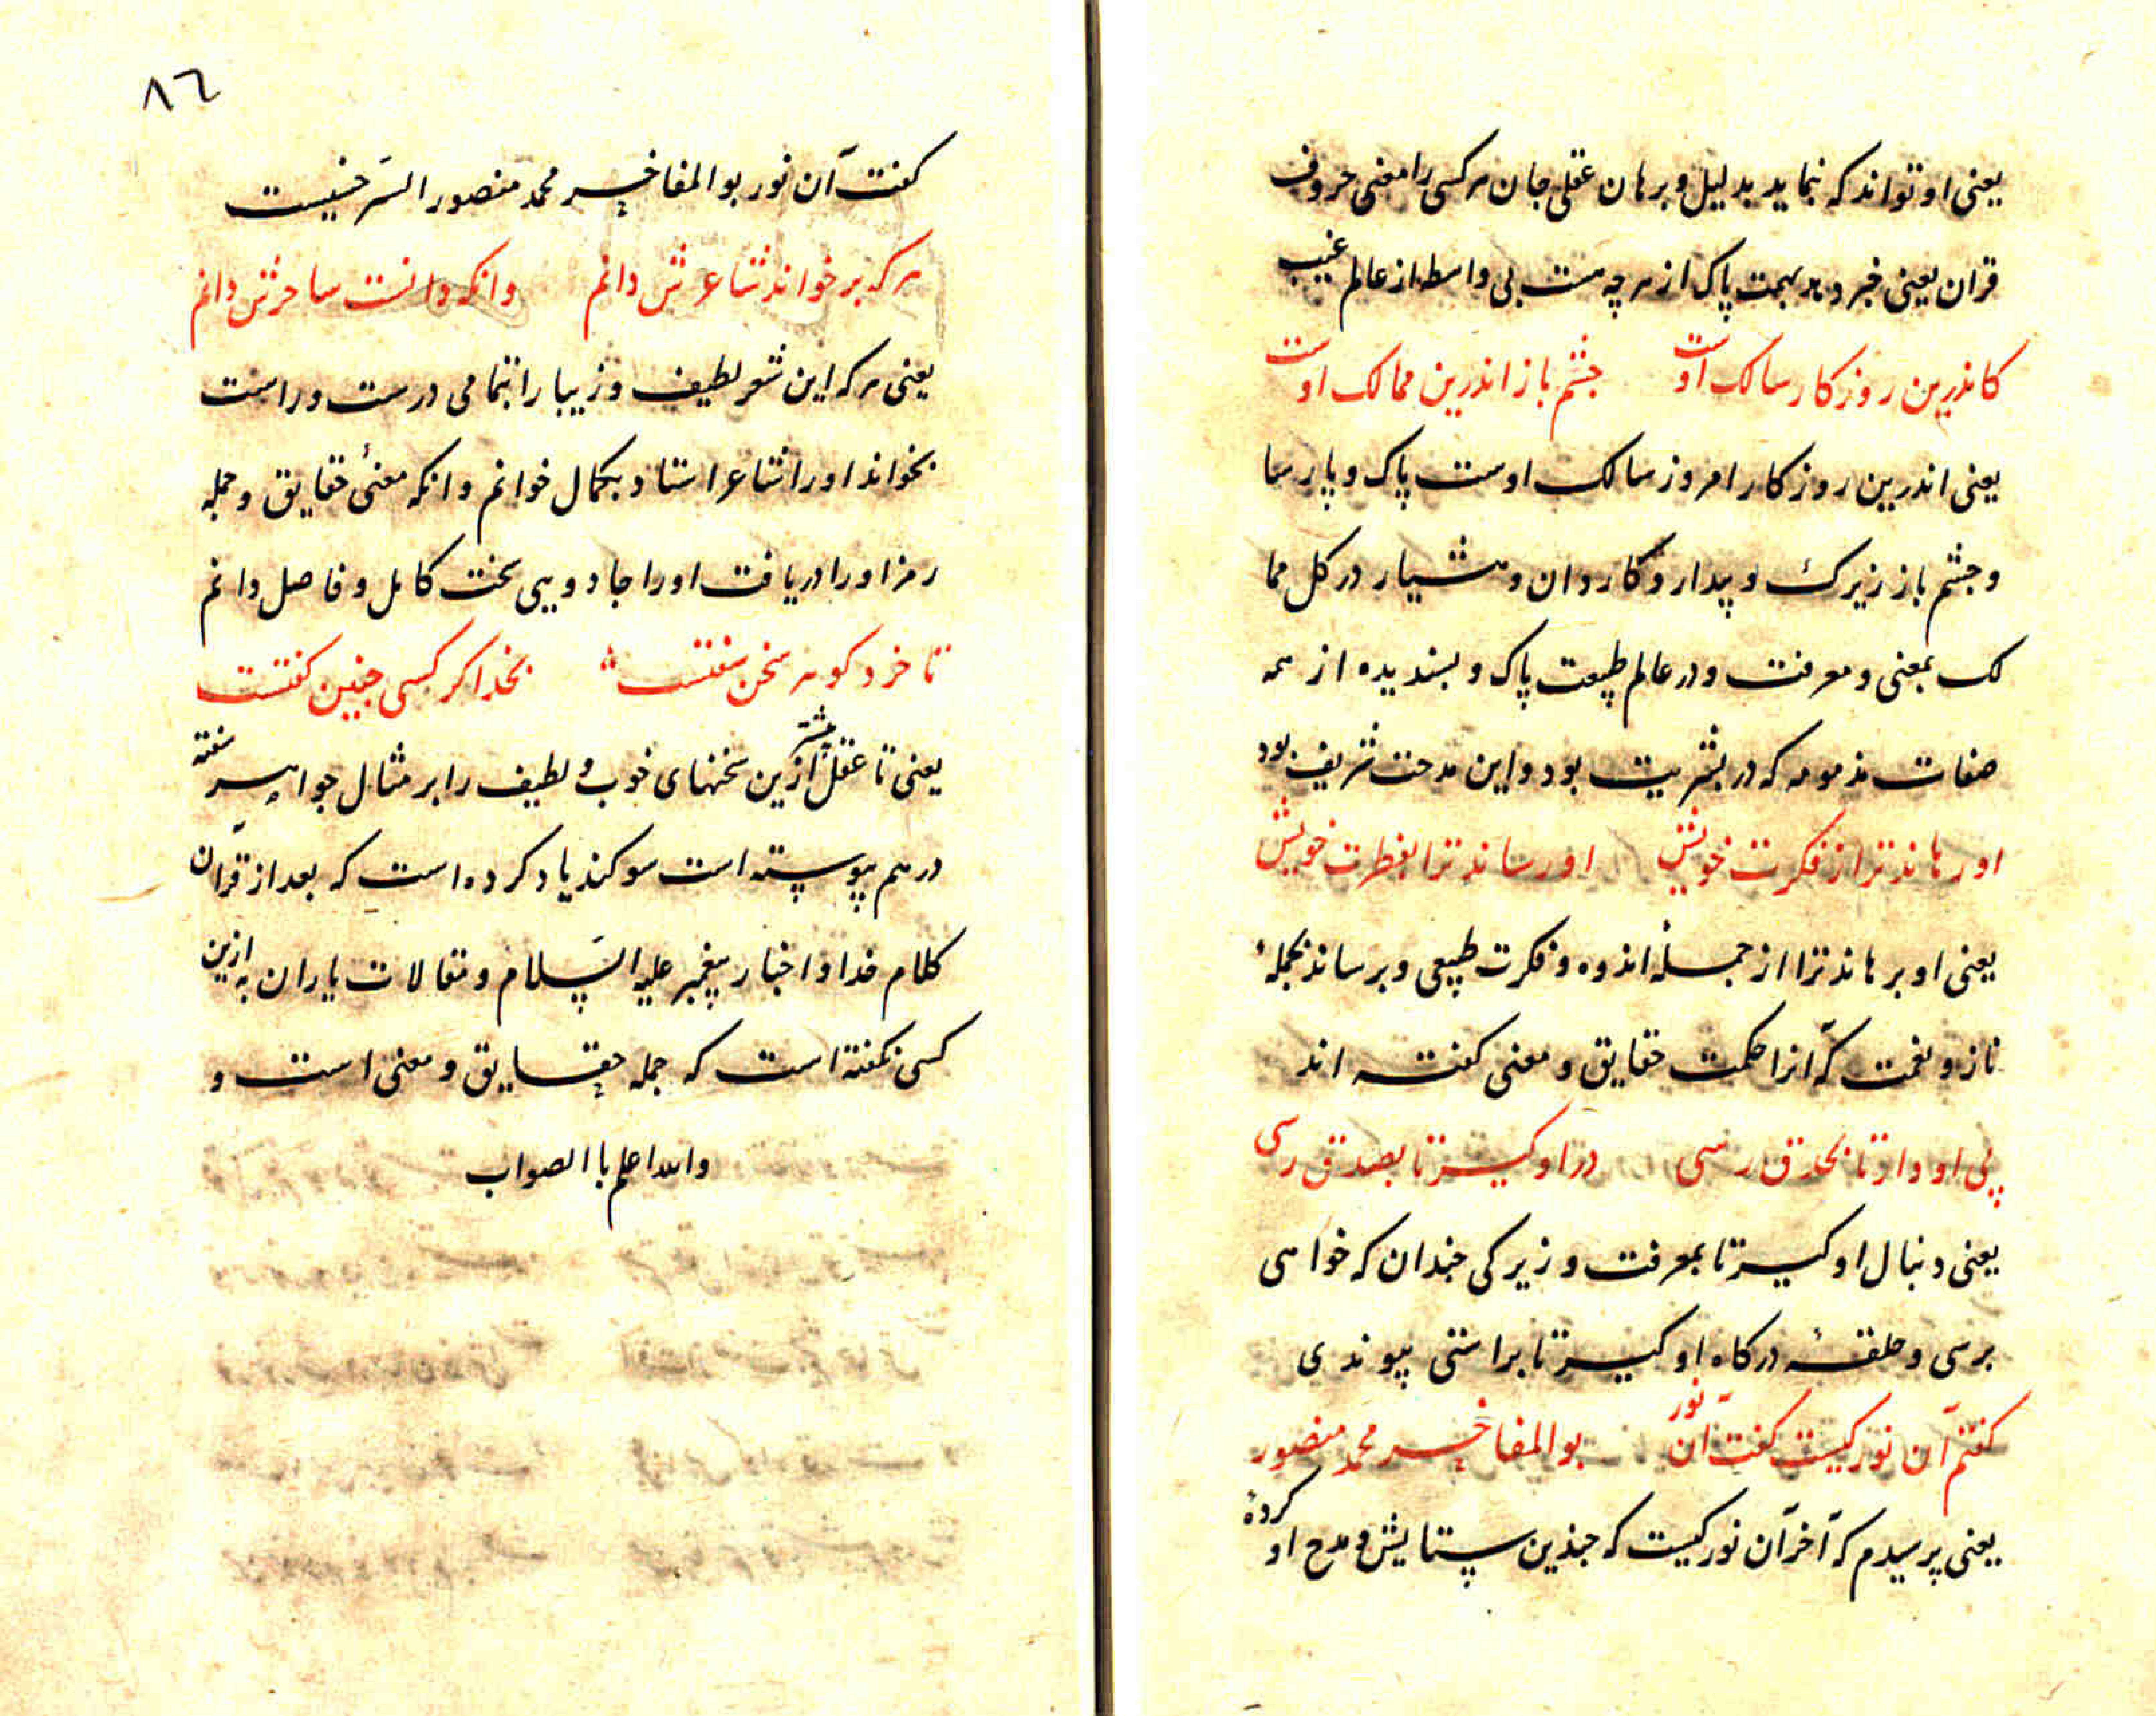 یعنی او تواند که نماید بدلیل و برهان عقلی جان هر کسی را معنی حروف
قران یعنی خبر دهد بهمت پاک از هر چه هست بی واسطه از عالم غیب
کاندرین روزکار سالک اوست جشم باز اندرین ممالک اوست
یعنی اندرین روزکار امروز سالک اوست پاک و پارسا
و جشم باز زیرک و بیدار و کاردان و هشیار در کل مما
لک بمعنی و معرفت و در عالم طبیعت پاک و بسندیده از همه
صفات مذمومه که در بشریت بود و این مدحت شریف بود
او رهاند ترا از فکرت خویش او رساند ترا بفطرت خویش
یعنی او برهاند ترا از جملهٔ اندوه و فکرت طبیعی و برساند بجملهٔ
ناز و نعمت که آنرا حکمت حقایق و معنی کفته اند
پی او دار تا بحذق رسی در او کیر تا بصدق رسی
یعنی دنبال او کیر تا بمعرفت و زیرکی جندان که خواهی
برسی و حلقهٔ درکاه او کیر تا براستی پیوندی
کفتم آن نور کیست کفت آن نور بوالمفاخر محمد منصور
یعنی پرسیدم که آخر آن نور کیست که جندین ستایش و مدح او کردهٔ
٨٦
کفت آن نور بوالمفاخر محمد منصور السرخسیست
هر که برخواند شاعرش دانم وانکه دانست ساحرش دانم
یعنی هر که این شعر لطیف و زیبا را بتمامی درست و راست
بخواند او را شاعر استاد بکمال خوانم و انکه معنیٔ حقایق و جمله
رمز او را دریافت او را جادویی سخت کامل و فاضل دانم
تا خرد کوهر سخن سفتست بخدا کر کسی جنین کفتست
یعنی تا عقل بیشتر ازین سخنهای خوب و لطیف را بر مثال جواهر سفته
در هم پیوسته است سوکند یاد کرده است که بعد از قرآن
کلام خدا و اخبار پیغمبر علیه السلام و مقالات یاران به ازین
کسی نکفته است که جمله حقایق و معنی است و
والله اعلم باالصواب